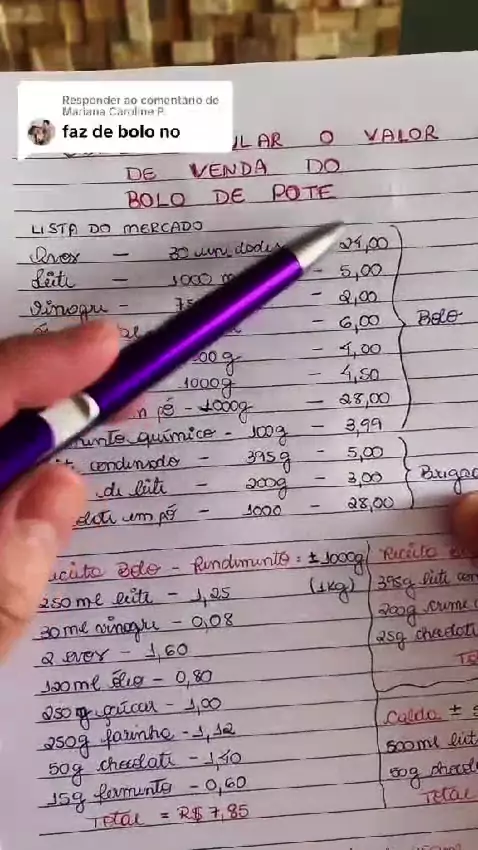 Responder ao comentário de
Mariana Caroline P.
faz de bolo no
ULAR O VALOR
DE VENDA DO
BOLO DE POTE
LISTA DO MERCADO
Ovos — 30 un. - 24,00
Leite — 1000 m - 5,00
vinagre - 75 - 2,00
- 6,00
00g - 4,00
1000g - 4,50
pó - 1000g - 28,00
químico - 100g - 3,99
condensado - 395g - 5,00
de leite - 200g - 3,00
em pó - 1000 - 28,00
Bolo
Brigad
Receita Bolo - Rendimento: ± 1000g
(1Kg)
250ml leite - 1,25
30ml vinagre - 0,08
2 ovos - 1,60
120ml óleo - 0,80
250g açúcar - 1,00
250g farinha - 1,12
50g chocolate - 1,40
15g fermento - 0,60
Total = R$ 7,85
Receita
395g leite con
200g creme
25g chocolat
To
Calda ±
500ml leit
50g chocola
Total